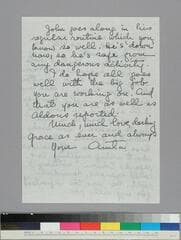 John goes along in his
regular routine which you
know so well. He's down
now, so he's safe from
any dangerous activity.
I do hope all goes
well with the big job
you are working on. And
that you are as well as
Aldous reported.
Much, much love, darling
Grace as ever and always
Your